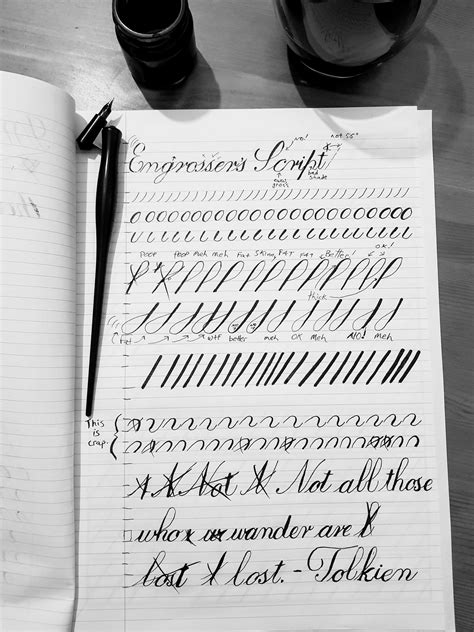 no! not 55°
Engrosser's Script
bad shade
poop poop meh meh Fat Skinny FAT FAT Better! OK!
thick
Fat WTF better meh OK meh NO! meh
This is crap.
Not Not all those
who wander are
lost l lost. - Tolkien